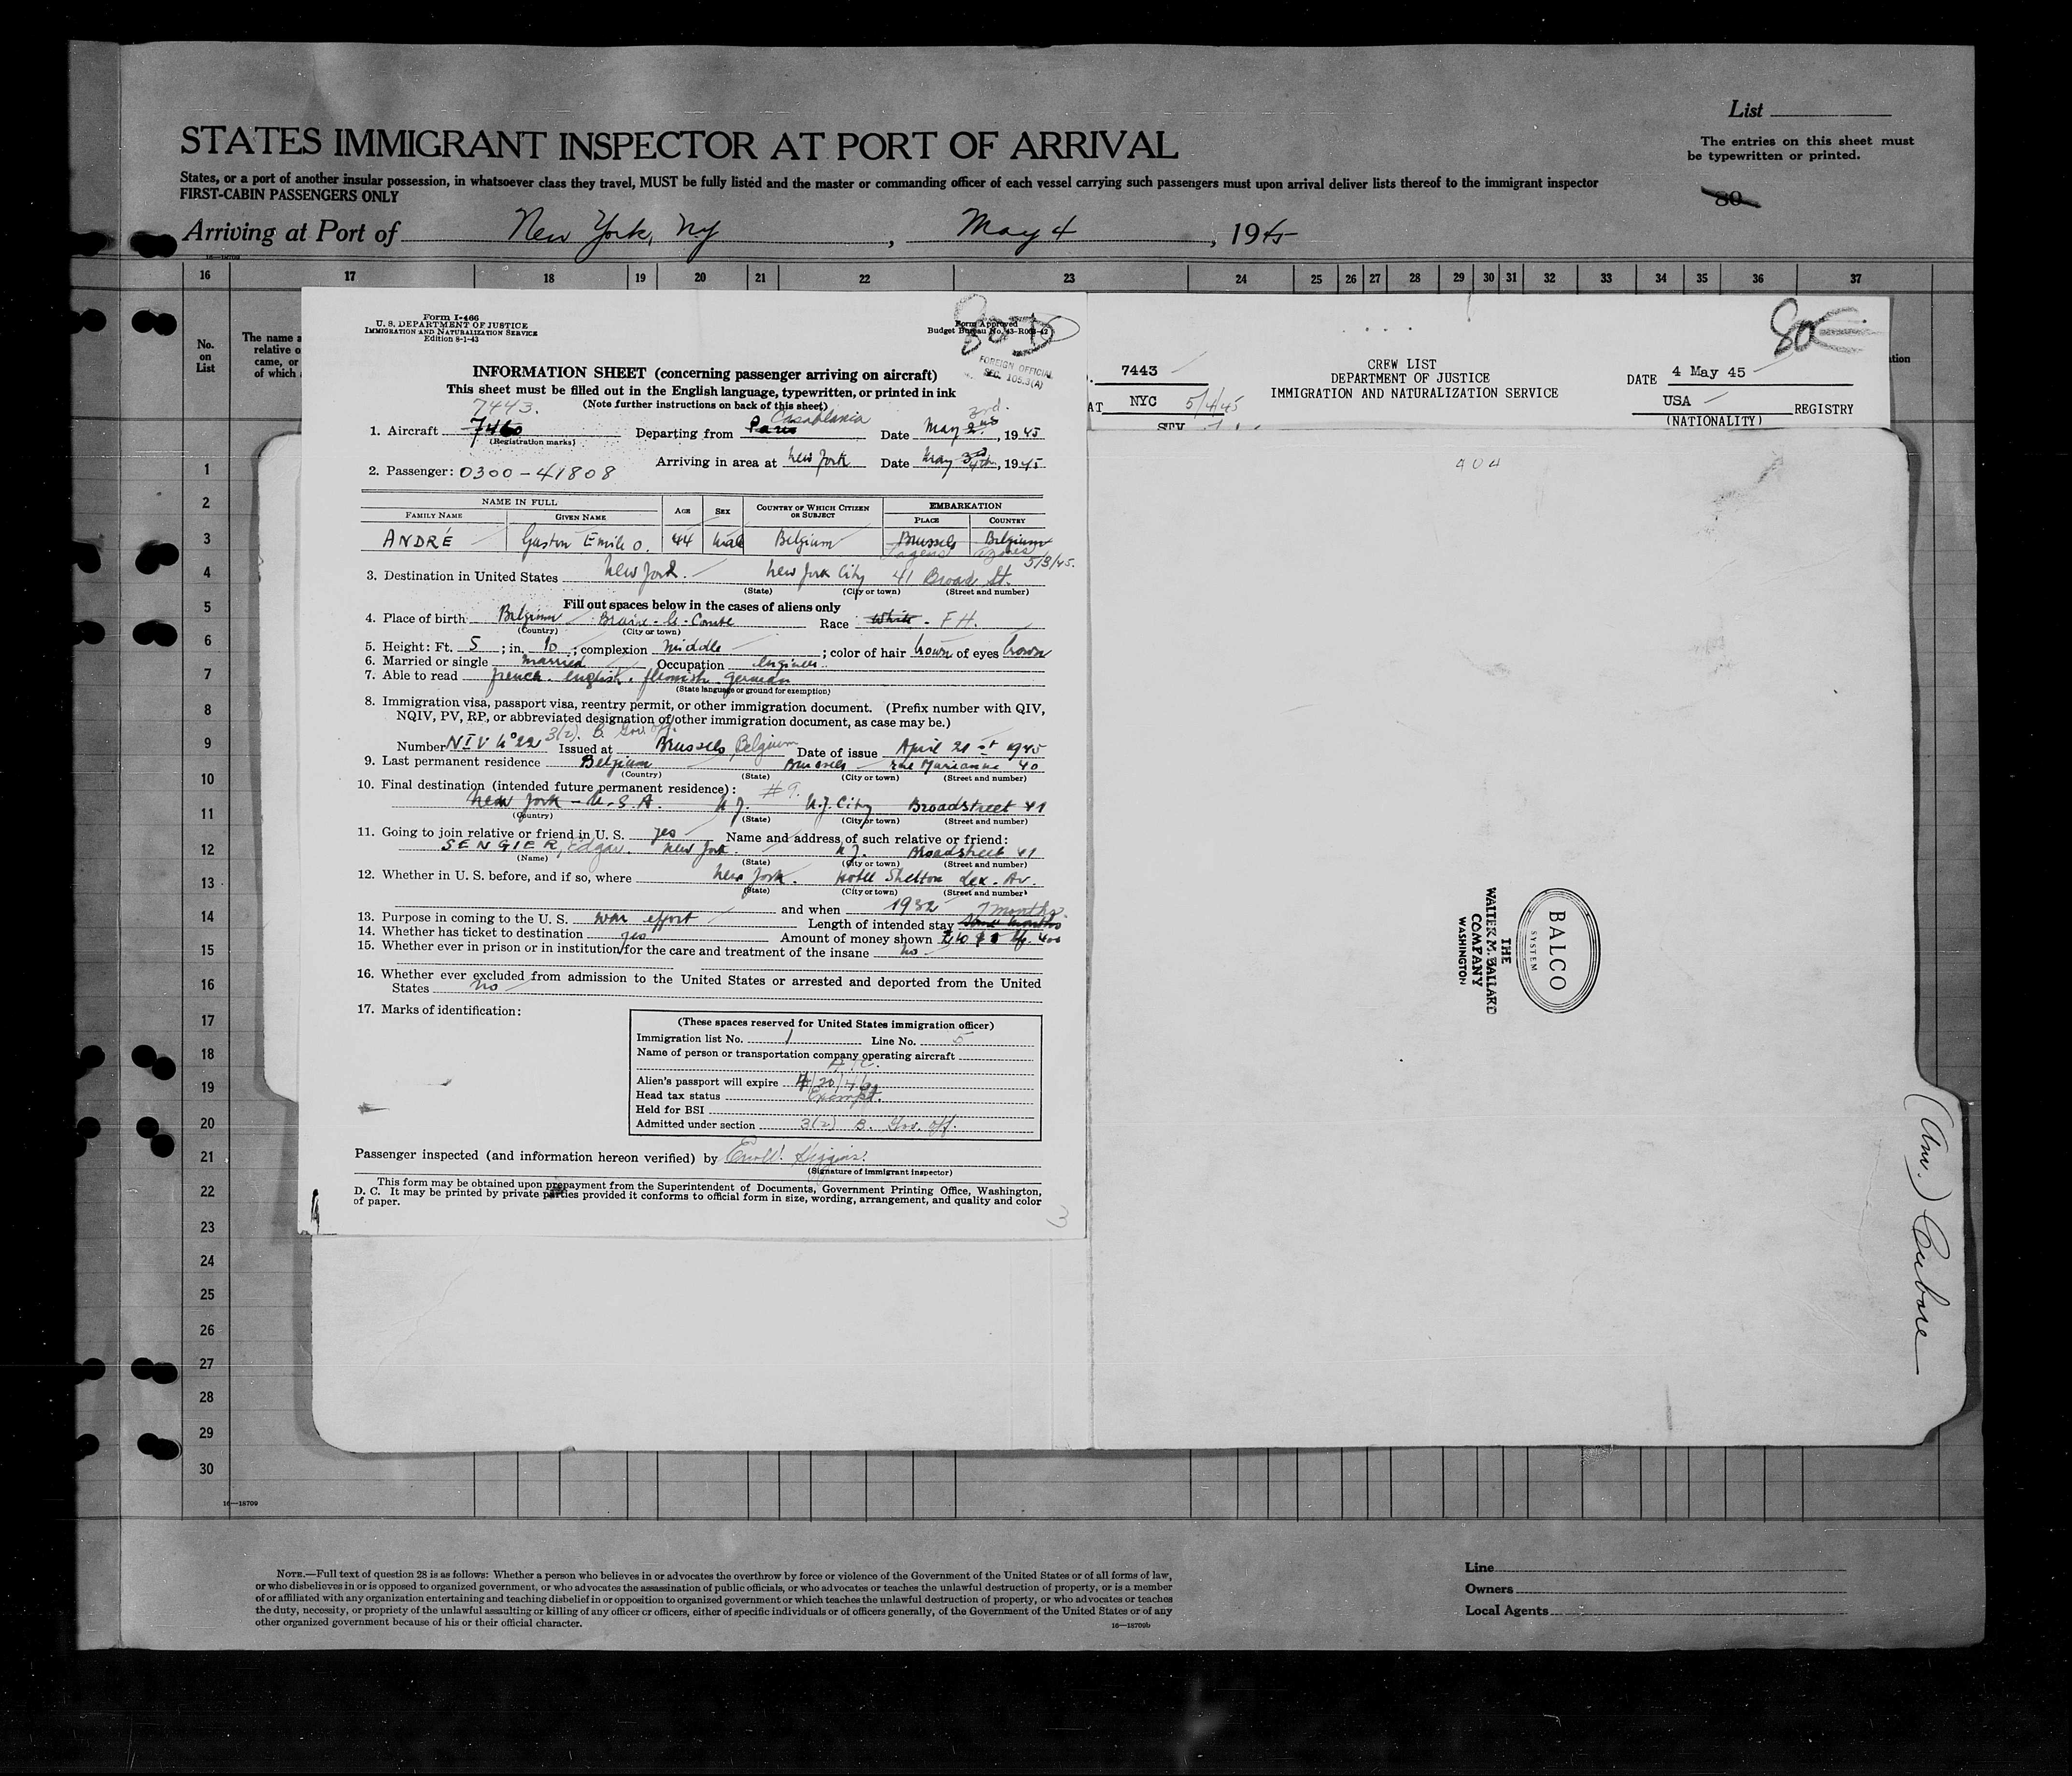 List
STATES IMMIGRANT INSPECTOR AT PORT OF ARRIVAL
The entries on this sheet must
be typewritten or printed.
States, or a port of another insular possession, in whatsoever class they travel, MUST be fully listed and the master or commanding officer of each vessel carrying such passengers must upon arrival deliver lists thereof to the immigrant inspector
FIRST-CABIN PASSENGERS ONLY
80
Arriving at Port of New York, NY, May 4, 1945
16—18709
16 17 18 19 20 21 22 23 24 25 26 27 28 29 30 31 32 33 34 35 36 37
No.
on
List
The name a
relative o
came, or
of which
Form I-466
U. S. DEPARTMENT OF JUSTICE
IMMIGRATION AND NATURALIZATION SERVICE
Edition 8-1-43
Form Approved
Budget Bureau No. 43-R008-42
FOREIGN OFFICIAL
SEC. 105.3(A)
INFORMATION SHEET (concerning passenger arriving on aircraft)
This sheet must be filled out in the English language, typewritten, or printed in ink
(Note further instructions on back of this sheet)
7443. Casablanca 3rd.
1. Aircraft 7460 Departing from Paris Date May 2nd, 1945
(Registration marks)
Arriving in area at New York Date May 4th, 1945
2. Passenger: 0300-41808
NAME IN FULL
FAMILY NAME GIVEN NAME AGE SEX COUNTRY OF WHICH CITIZEN OR SUBJECT EMBARKATION
PLACE COUNTRY
ANDRÉ Gaston Emile O. 44 male Belgium Brussels Belgium
Lagens Azores 5/3/45.
3. Destination in United States New York. New York City 41 Broad St.
(State) (City or town) (Street and number)
Fill out spaces below in the cases of aliens only
4. Place of birth Belgium Braine-le-Comte Race White - FH.
(Country) (City or town)
5. Height: Ft. 5; in. 10; complexion middle; color of hair brown of eyes brown
6. Married or single married Occupation engineer
7. Able to read french. english. flemish. german
(State language or ground for exemption)
8. Immigration visa, passport visa, reentry permit, or other immigration document. (Prefix number with QIV,
NQIV, PV, RP, or abbreviated designation of other immigration document, as case may be.)
3(2). B. Gov. off.
Number NIV N° 22 Issued at Brussels, Belgium Date of issue April 21st 1945
9. Last permanent residence Belgium Brussels rue Marianne 40
(Country) (State) (City or town) (Street and number)
10. Final destination (intended future permanent residence): #9.
New York - U.S.A. N.Y. N.Y. City Broadstreet 41
(Country) (State) (City or town) (Street and number)
11. Going to join relative or friend in U. S. yes Name and address of such relative or friend:
SENGIER, Edgar. New York. N.Y. Broadstreet 41
(Name) (State) (City or town) (Street and number)
12. Whether in U. S. before, and if so, where New York. Hotel Shelton Lex. Av.
(State) (City or town) (Street and number)
and when 1932 7 months.
13. Purpose in coming to the U. S. war effort Length of intended stay
14. Whether has ticket to destination yes Amount of money shown
15. Whether ever in prison or in institution for the care and treatment of the insane no
16. Whether ever excluded from admission to the United States or arrested and deported from the United
States no
17. Marks of identification:
(These spaces reserved for United States immigration officer)
Immigration list No. 1 Line No. 5
Name of person or transportation company operating aircraft
A.T.C.
Alien's passport will expire
Head tax status Exempt.
Held for BSI
Admitted under section 3(2) B. Gov. off.
Passenger inspected (and information hereon verified) by Higgins
(Signature of immigrant inspector)
This form may be obtained upon prepayment from the Superintendent of Documents, Government Printing Office, Washington,
D. C. It may be printed by private parties provided it conforms to official form in size, wording, arrangement, and quality and color
of paper.
3
80
7443
CREW LIST
DEPARTMENT OF JUSTICE
IMMIGRATION AND NATURALIZATION SERVICE
DATE 4 May 45
AT NYC 5/4/45
USA REGISTRY
(NATIONALITY)
ation
404
BALCO
SYSTEM
THE
WALTER M. BALLARD
COMPANY
WASHINGTON
1
2
3
4
5
6
7
8
9
10
11
12
13
14
15
16
17
18
19
20
21
22
23
24
25
26
27
28
29
30
16—18709
NOTE.—Full text of question 28 is as follows: Whether a person who believes in or advocates the overthrow by force or violence of the Government of the United States or of all forms of law,
or who disbelieves in or is opposed to organized government, or who advocates the assassination of public officials, or who advocates or teaches the unlawful destruction of property, or is a member
of or affiliated with any organization entertaining and teaching disbelief in or opposition to organized government or which teaches the unlawful destruction of property, or who advocates or teaches
the duty, necessity, or propriety of the unlawful assaulting or killing of any officer or officers, either of specific individuals or of officers generally, of the Government of the United States or of any
other organized government because of his or their official character.
16—18709b
Line
Owners
Local Agents